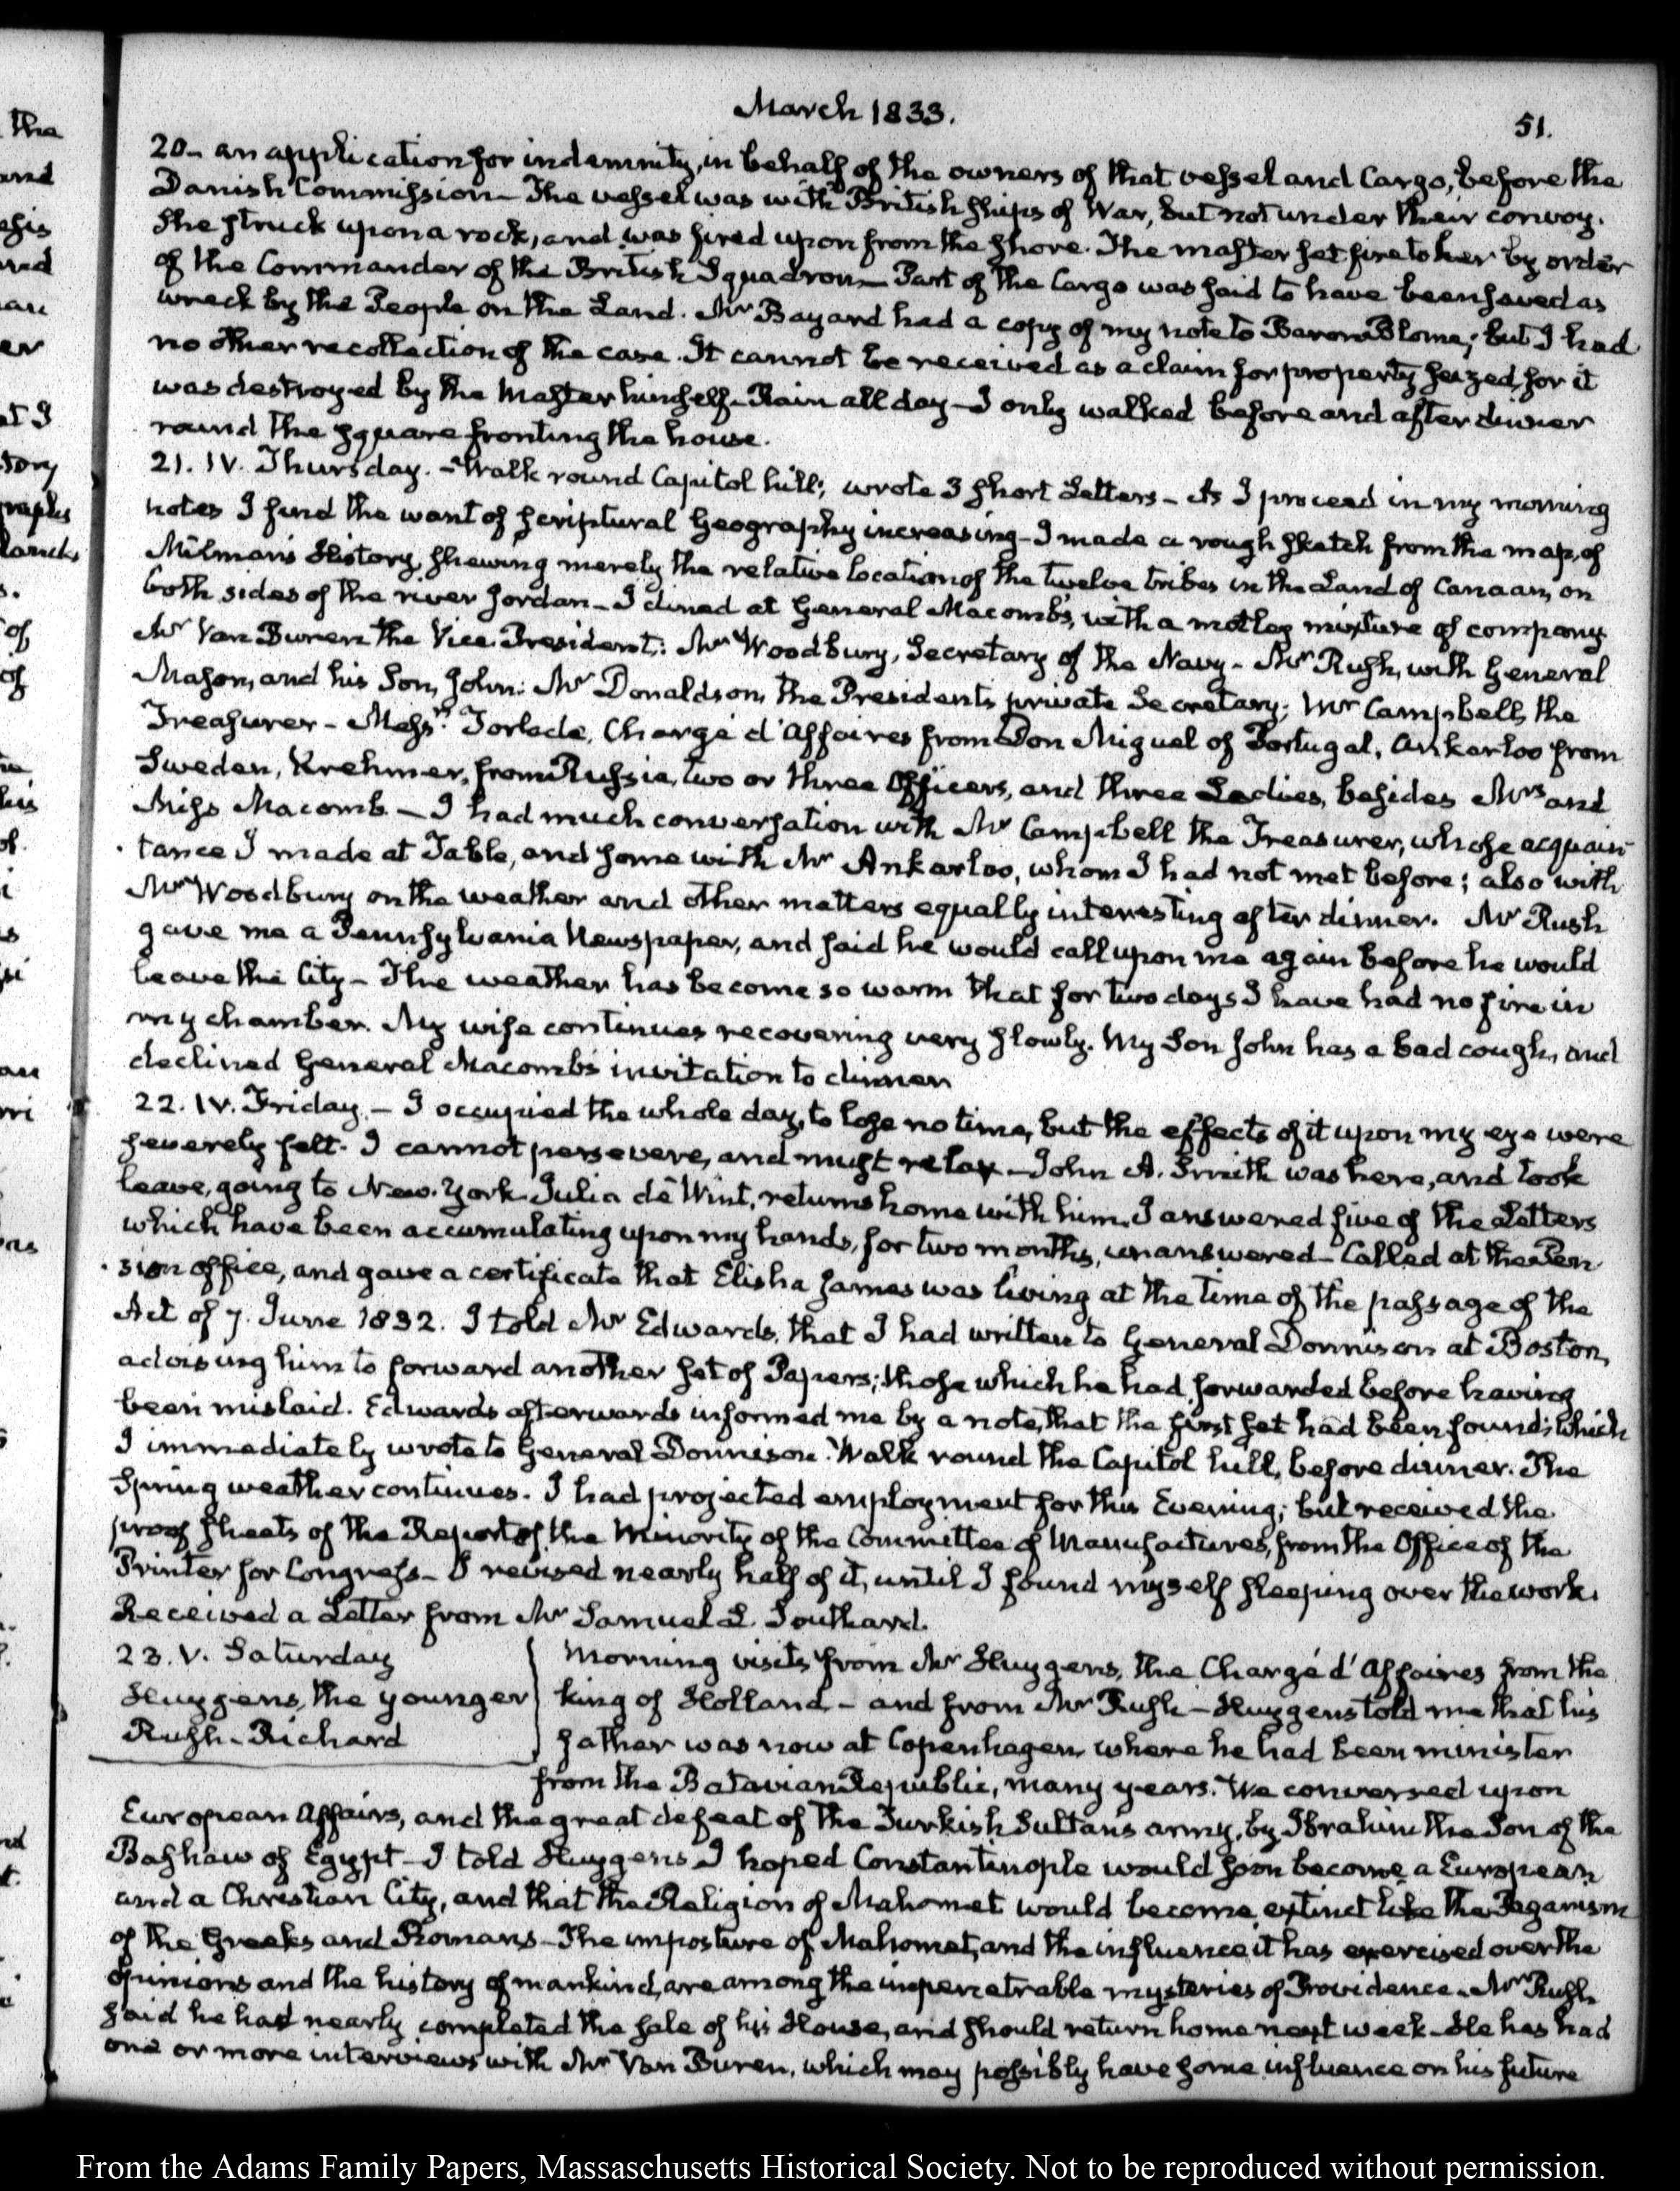 March 1833.
51.
20– an application for indemnity, in behalf of the owners of that vessel and Cargo, before the
Danish Commission– The vessel was with British ships of War, but not under their convoy.
She struck upon a rock, and was fired upon from the shore. The master set fire to her by order
of the Commander of the British Squadron– Part of the Cargo was said to have been saved as
wreck by the People on the Land. Mr Bayard had a copy of my note to Baron Blome; but I had
no other recollection of the case. It cannot be received as a claim for property seized, for it
was destroyed by the Master himself– Rain all day– I only walked before and after dinner
round the square fronting the house.
21. IV. Thursday. – Walk round Capitol hill; wrote 3 short Letters– As I proceed in my morning
notes I find the want of scriptural Geography increasing– I made a rough sketch from the map, of
Milman's History, shewing merely the relative location of the twelve tribes in the Land of Canaan, on
both sides of the river Jordan– I dined at General Macomb's, with a motley mixture of company
Mr Van Buren the Vice-President: Mr Woodbury, Secretary of the Navy– Mr Rush, with General
Mason, and his Son, John: Mr Donaldson, the President's private Secretary; Mr Campbell, the
Treasurer– Messrs Torlade, Chargé d'Affaires from Don Miguel of Portugal, Ankarloo from
Sweden, Krehmer, from Russia, two or three Officers, and three Ladies, besides Mrs and
Miss Macomb. – I had much conversation with Mr Campbell the Treasurer, whose acquain-
tance I made at Table, and some with Mr Ankarloo, whom I had not met before; also with
Mr Woodbury on the weather and other matters equally interesting after dinner. Mr Rush
gave me a Pennsylvania Newspaper, and said he would call upon me again before he would
leave the City– The weather has become so warm that for two days I have had no fire in
my chamber. My wife continues recovering very slowly. My Son John has a bad cough, and
declined General Macomb's invitation to dinner
22. IV. Friday. – I occupied the whole day, to lose no time, but the effects of it upon my eye were
severely felt. I cannot persevere, and must relax– John A. Smith was here, and took
leave, going to New-York. Julia de Wint, returns home with him. I answered five of the Letters
which have been accumulating upon my hands, for two months, unanswered– Called at the Pen-
sion office, and gave a certificate that Elisha James was living at the time of the passage of the
Act of 7. June 1832. I told Mr Edwards, that I had written to General Donnison at Boston,
advising him to forward another set of Papers; those which he had forwarded before having
been mislaid. Edwards afterwards informed me by a note, that the first set had been found; which
I immediately wrote to General Donnison. Walk round the Capitol hill, before dinner. The
Spring weather continues. I had projected employment for this Evening; but received the
proof sheets of the Report of the Minority of the Committee of Manufactures, from the Office of the
Printer for Congress– I revised nearly half of it, until I found myself sleeping over the work.
Received a Letter from Mr Samuel L. Southard.
23. V. Saturday
Huygens, the younger
Rush– Richard
Morning visits from Mr Huygens, the Chargé d'Affaires from the
king of Holland– and from Mr Rush– Huygens told me that his
father was now at Copenhagen, where he had been minister
from the Batavian Republic, many years. We conversed upon
European Affairs, and the great defeat of the Turkish Sultan's army, by Ibrahim the Son of the
Bashaw of Egypt– I told Huygens I hoped Constantinople would soon become a European
and a Christian City, and that the Religion of Mahomet would become extinct like the Paganism
of the Greeks and Romans– The imposture of Mahomet, and the influence it has exercised over the
opinions and the history of mankind, are among the impenetrable mysteries of Providence. Mr Rush
said he had nearly completed the sale of his House, and should return home next week– He has had
one or more interviews with Mr Van Buren, which may possibly have some influence on his future
From the Adams Family Papers, Massachusetts Historical Society. Not to be reproduced without permission.